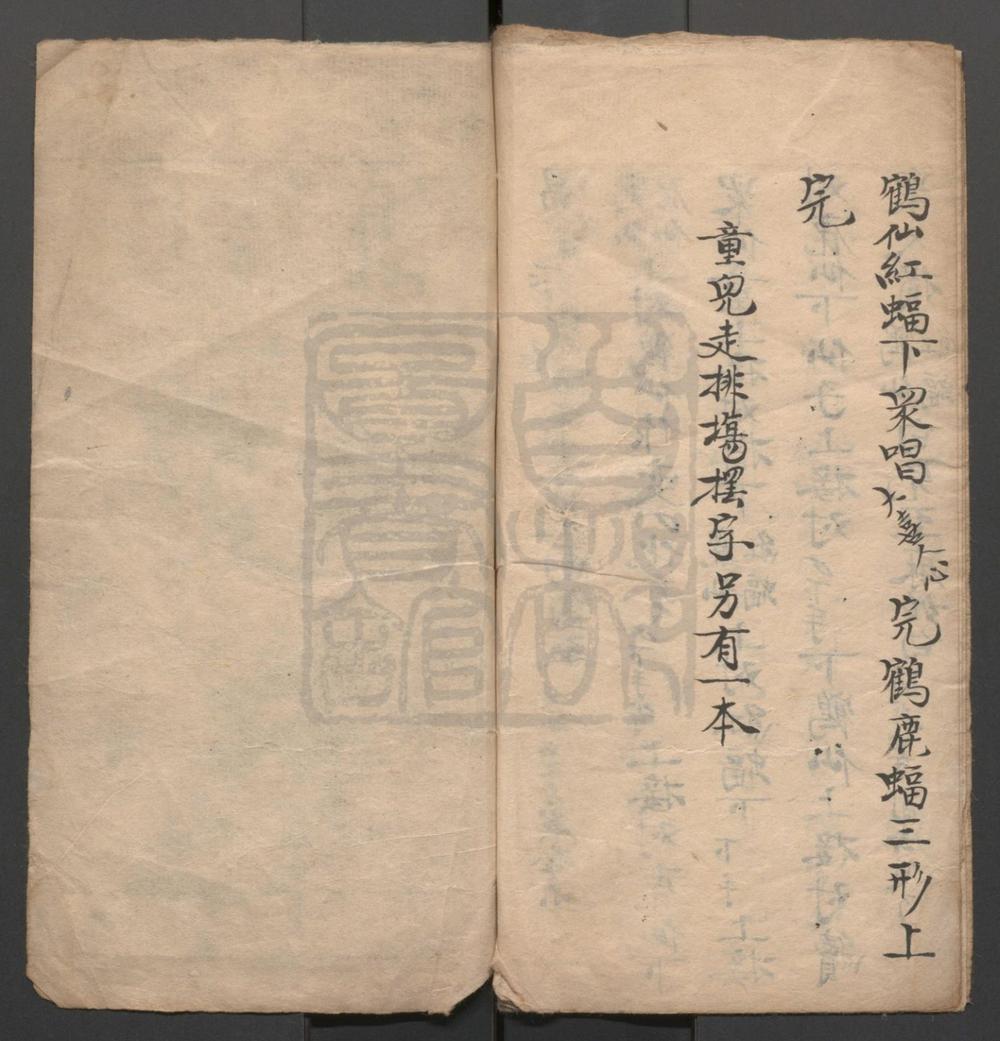 鶴仙紅蝠下衆唱大喜人心完鶴鹿蝠三形上
完
童兒走排塲擺字另有一本